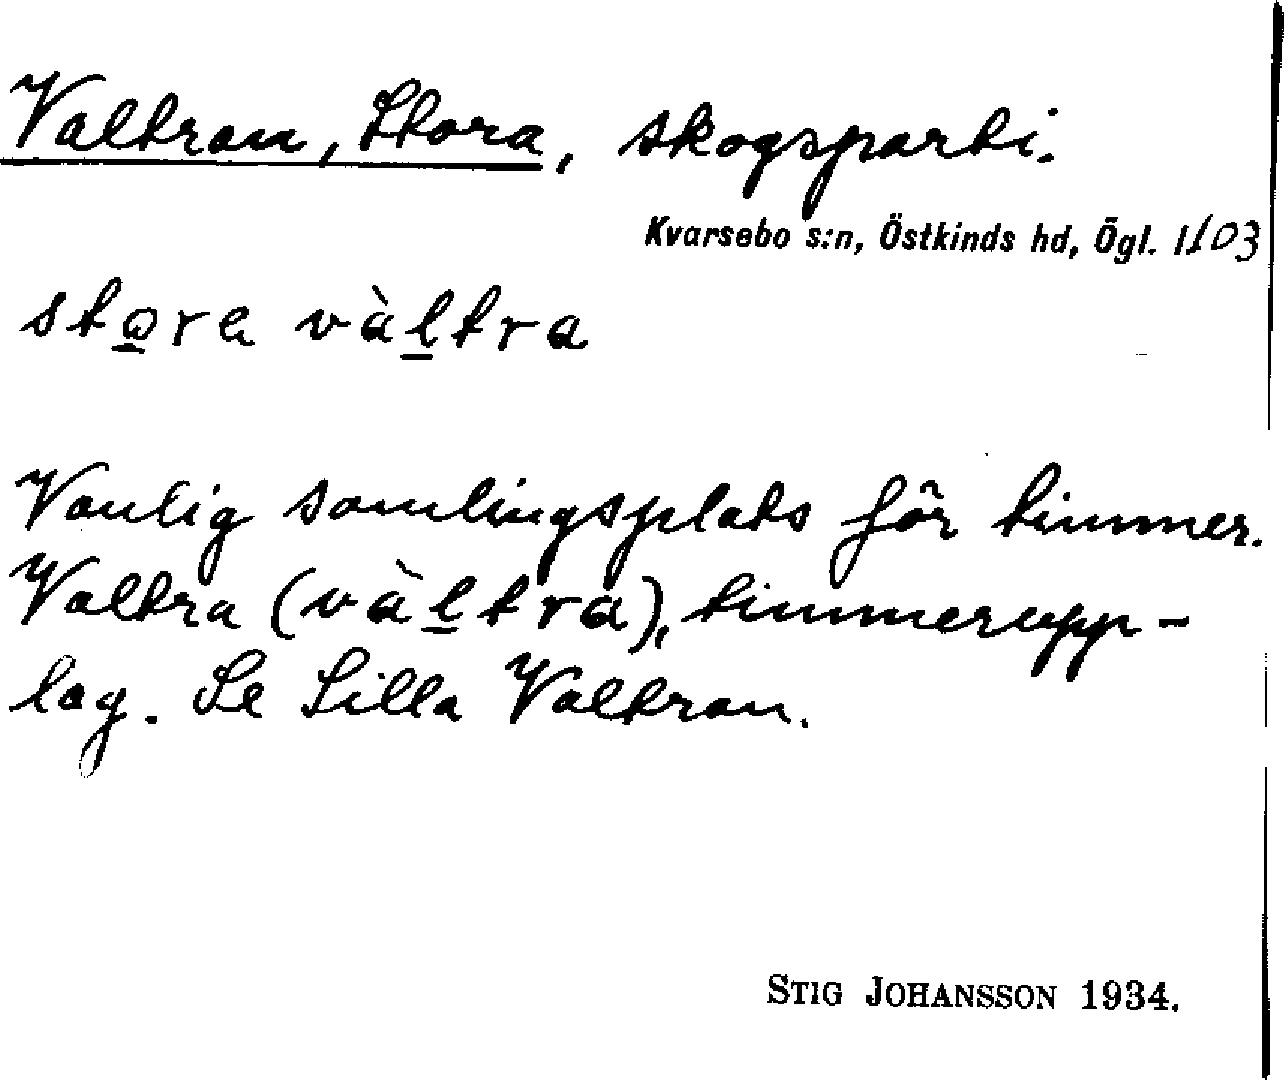 Valtran, Stora, skogsparti.
Kvarsebo s:n, Östkinds hd, Ögl. 1103
sto̲ra vàl̲tra
Vanlig samlingsplats för timmer.
Valtra (vàl̲tra), timmerupp-
lag. Se Lilla Valtran.
STIG JOHANSSON 1934.